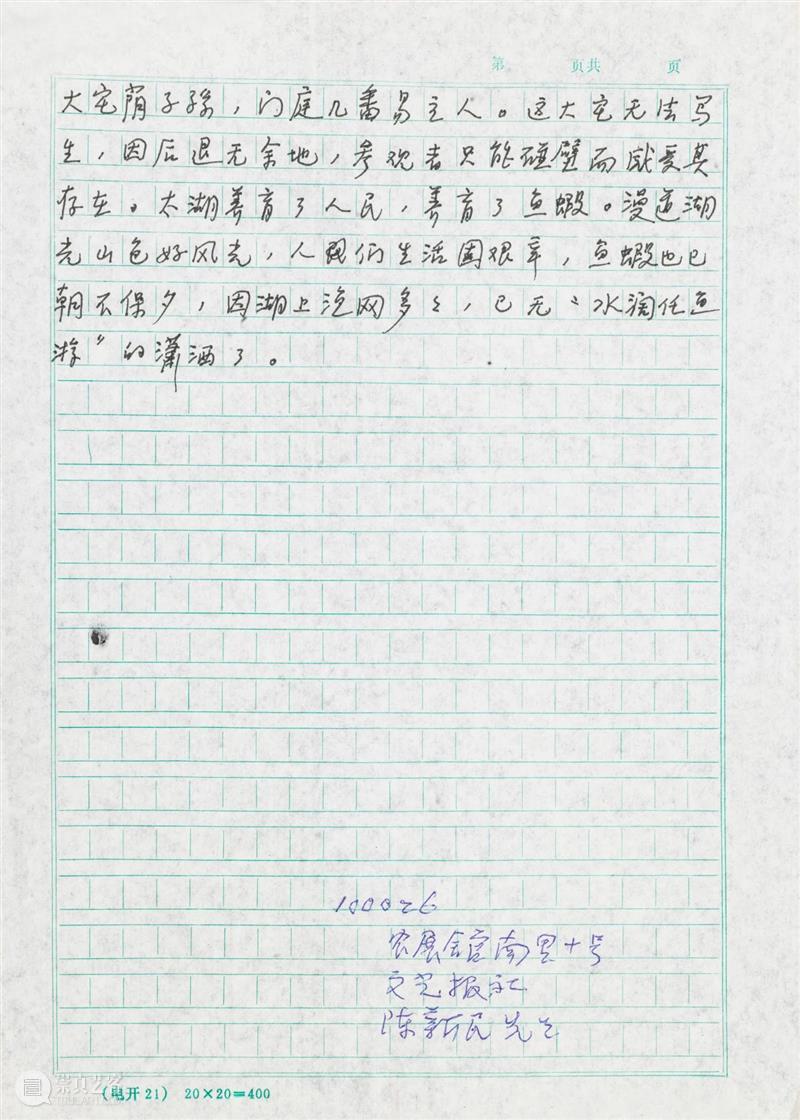 第 页共 页
大宅荫子孙，门庭几番易主人。这大宅无法写
生，因后退无余地，参观者只能碰壁而感受其
存在。太湖养育了人民，养育了鱼蝦。漫道湖
光山色好风光，人们生活固艰辛，鱼蝦也已
朝不保夕，因湖上渔网多多，已无“水阔任鱼
游”的潇洒了。
100026
农展馆南里十号
文艺报社
陈新民先生
(电开21) 20×20=400
崇真艺客